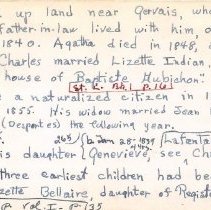 up land near Gervais, wh
father-in-law lived with him, o
1840. Agatha died in 1848,
Charles married Lizette Indian,
house of Baptiste Aubichon."
St. L. Bk. I p. 16
a naturalized citizen in 1
1855. His widow married Jean
(Despertes) the following year.
269 (b. Jan 28-1839 Lafantai
is daughter Genevieve, see Ch
4 yrs.
three earliest children had bee
zette Bellaire, daughter of Regist
p. Vol. I - p 135